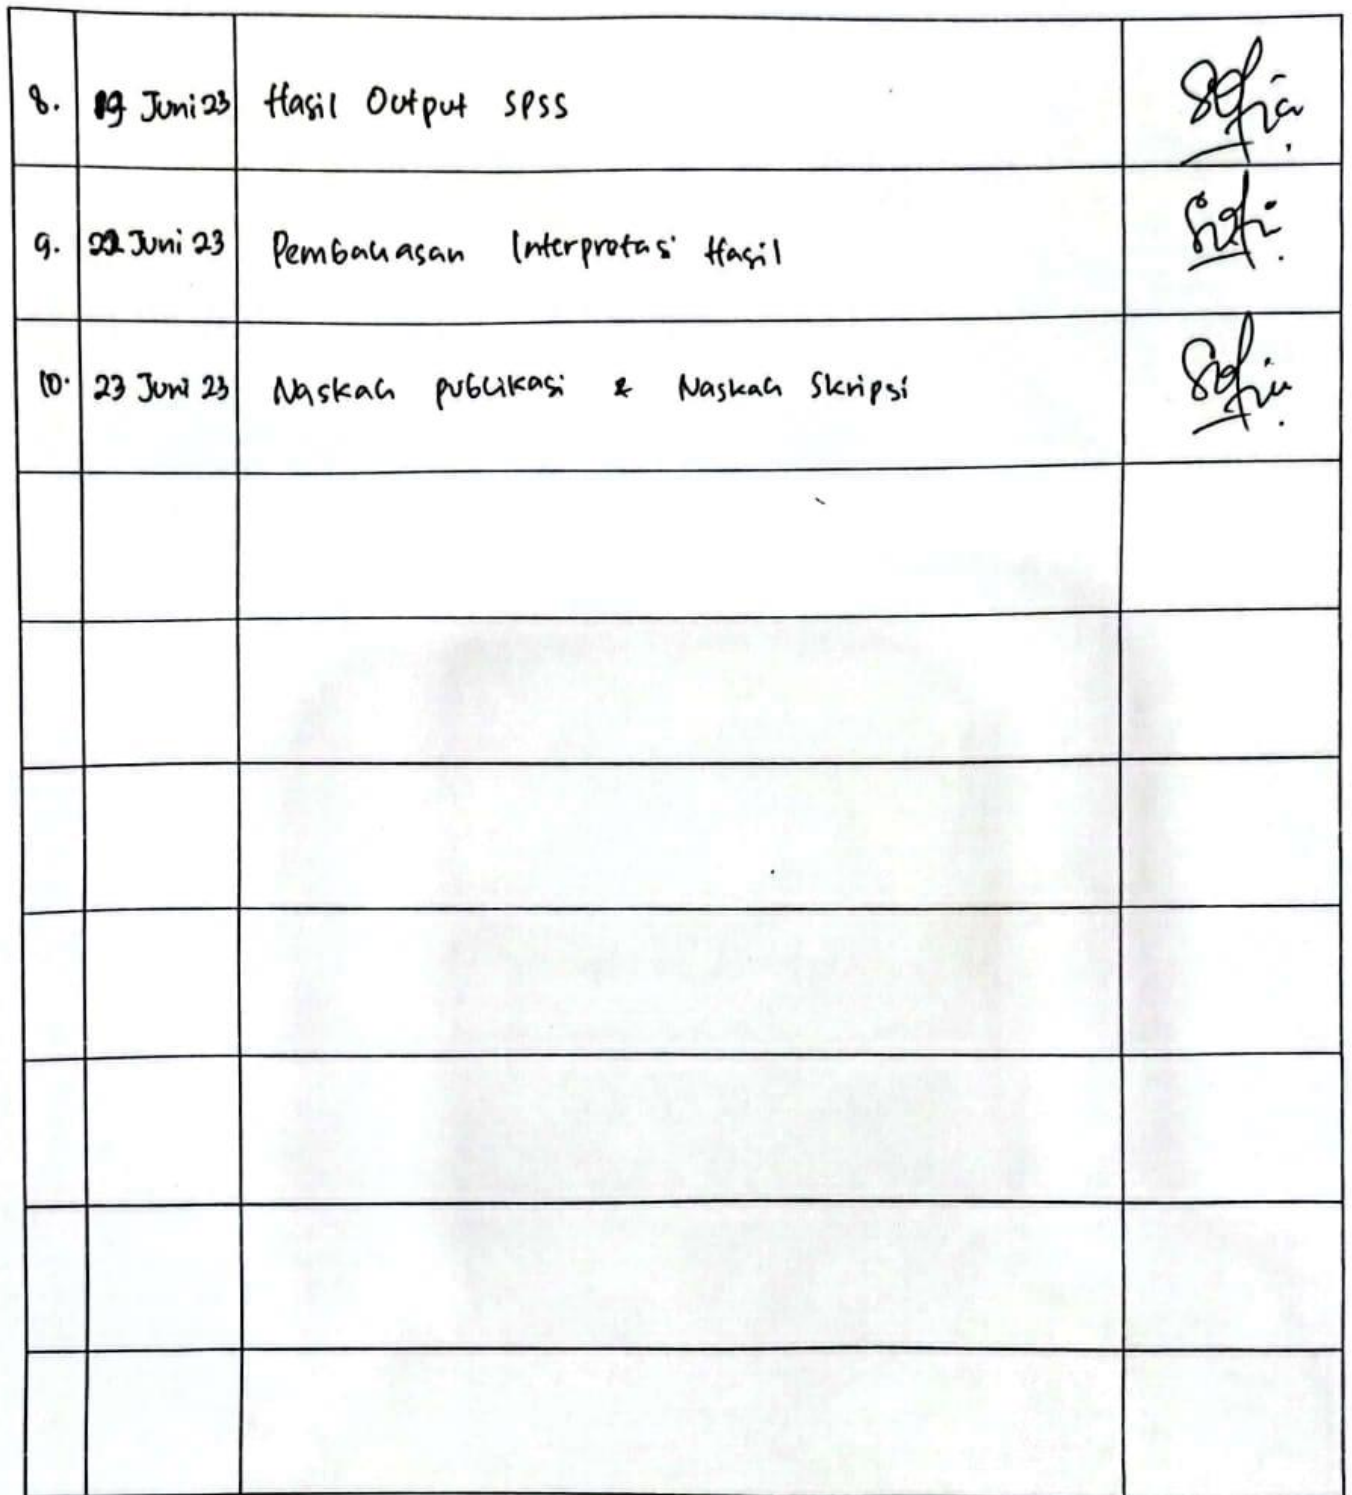 8. 19 Juni 23 Hasil Output SPSS
9. 22 Juni 23 Pembahasan Interpretasi Hasil
10. 23 Juni 23 Naskah publikasi & Naskah Skripsi